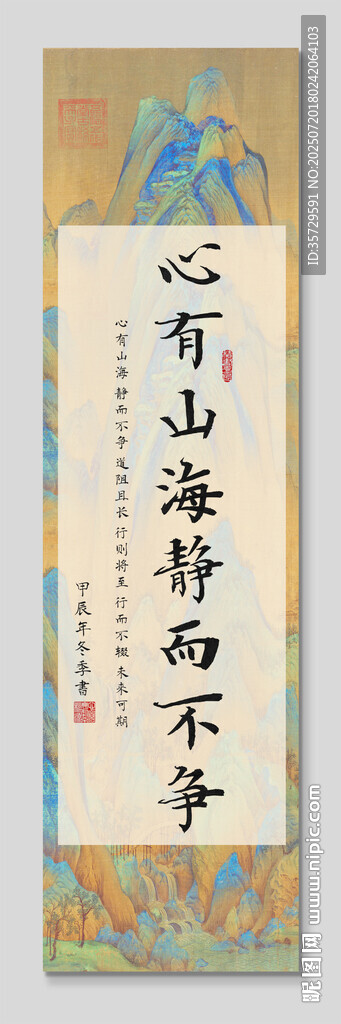 心有山海静而不争
心有山海 静而不争 道阻且长 行则将至 行而不辍 未来可期
甲辰年冬季書
ID:35729591 NO:20250720180242064103
昵图网 www.nipic.com